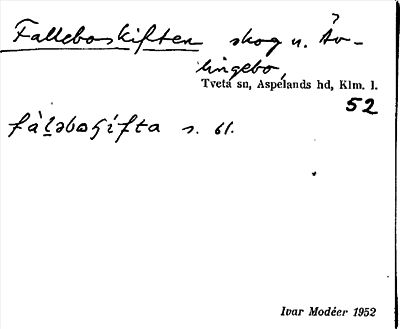 Falleboskiften skog n. Äv-
lingebo,
Tveta sn, Aspelands hd, Klm. l.
52
fàl̠əbωʃifta s. 61.
Ivar Modéer 1952